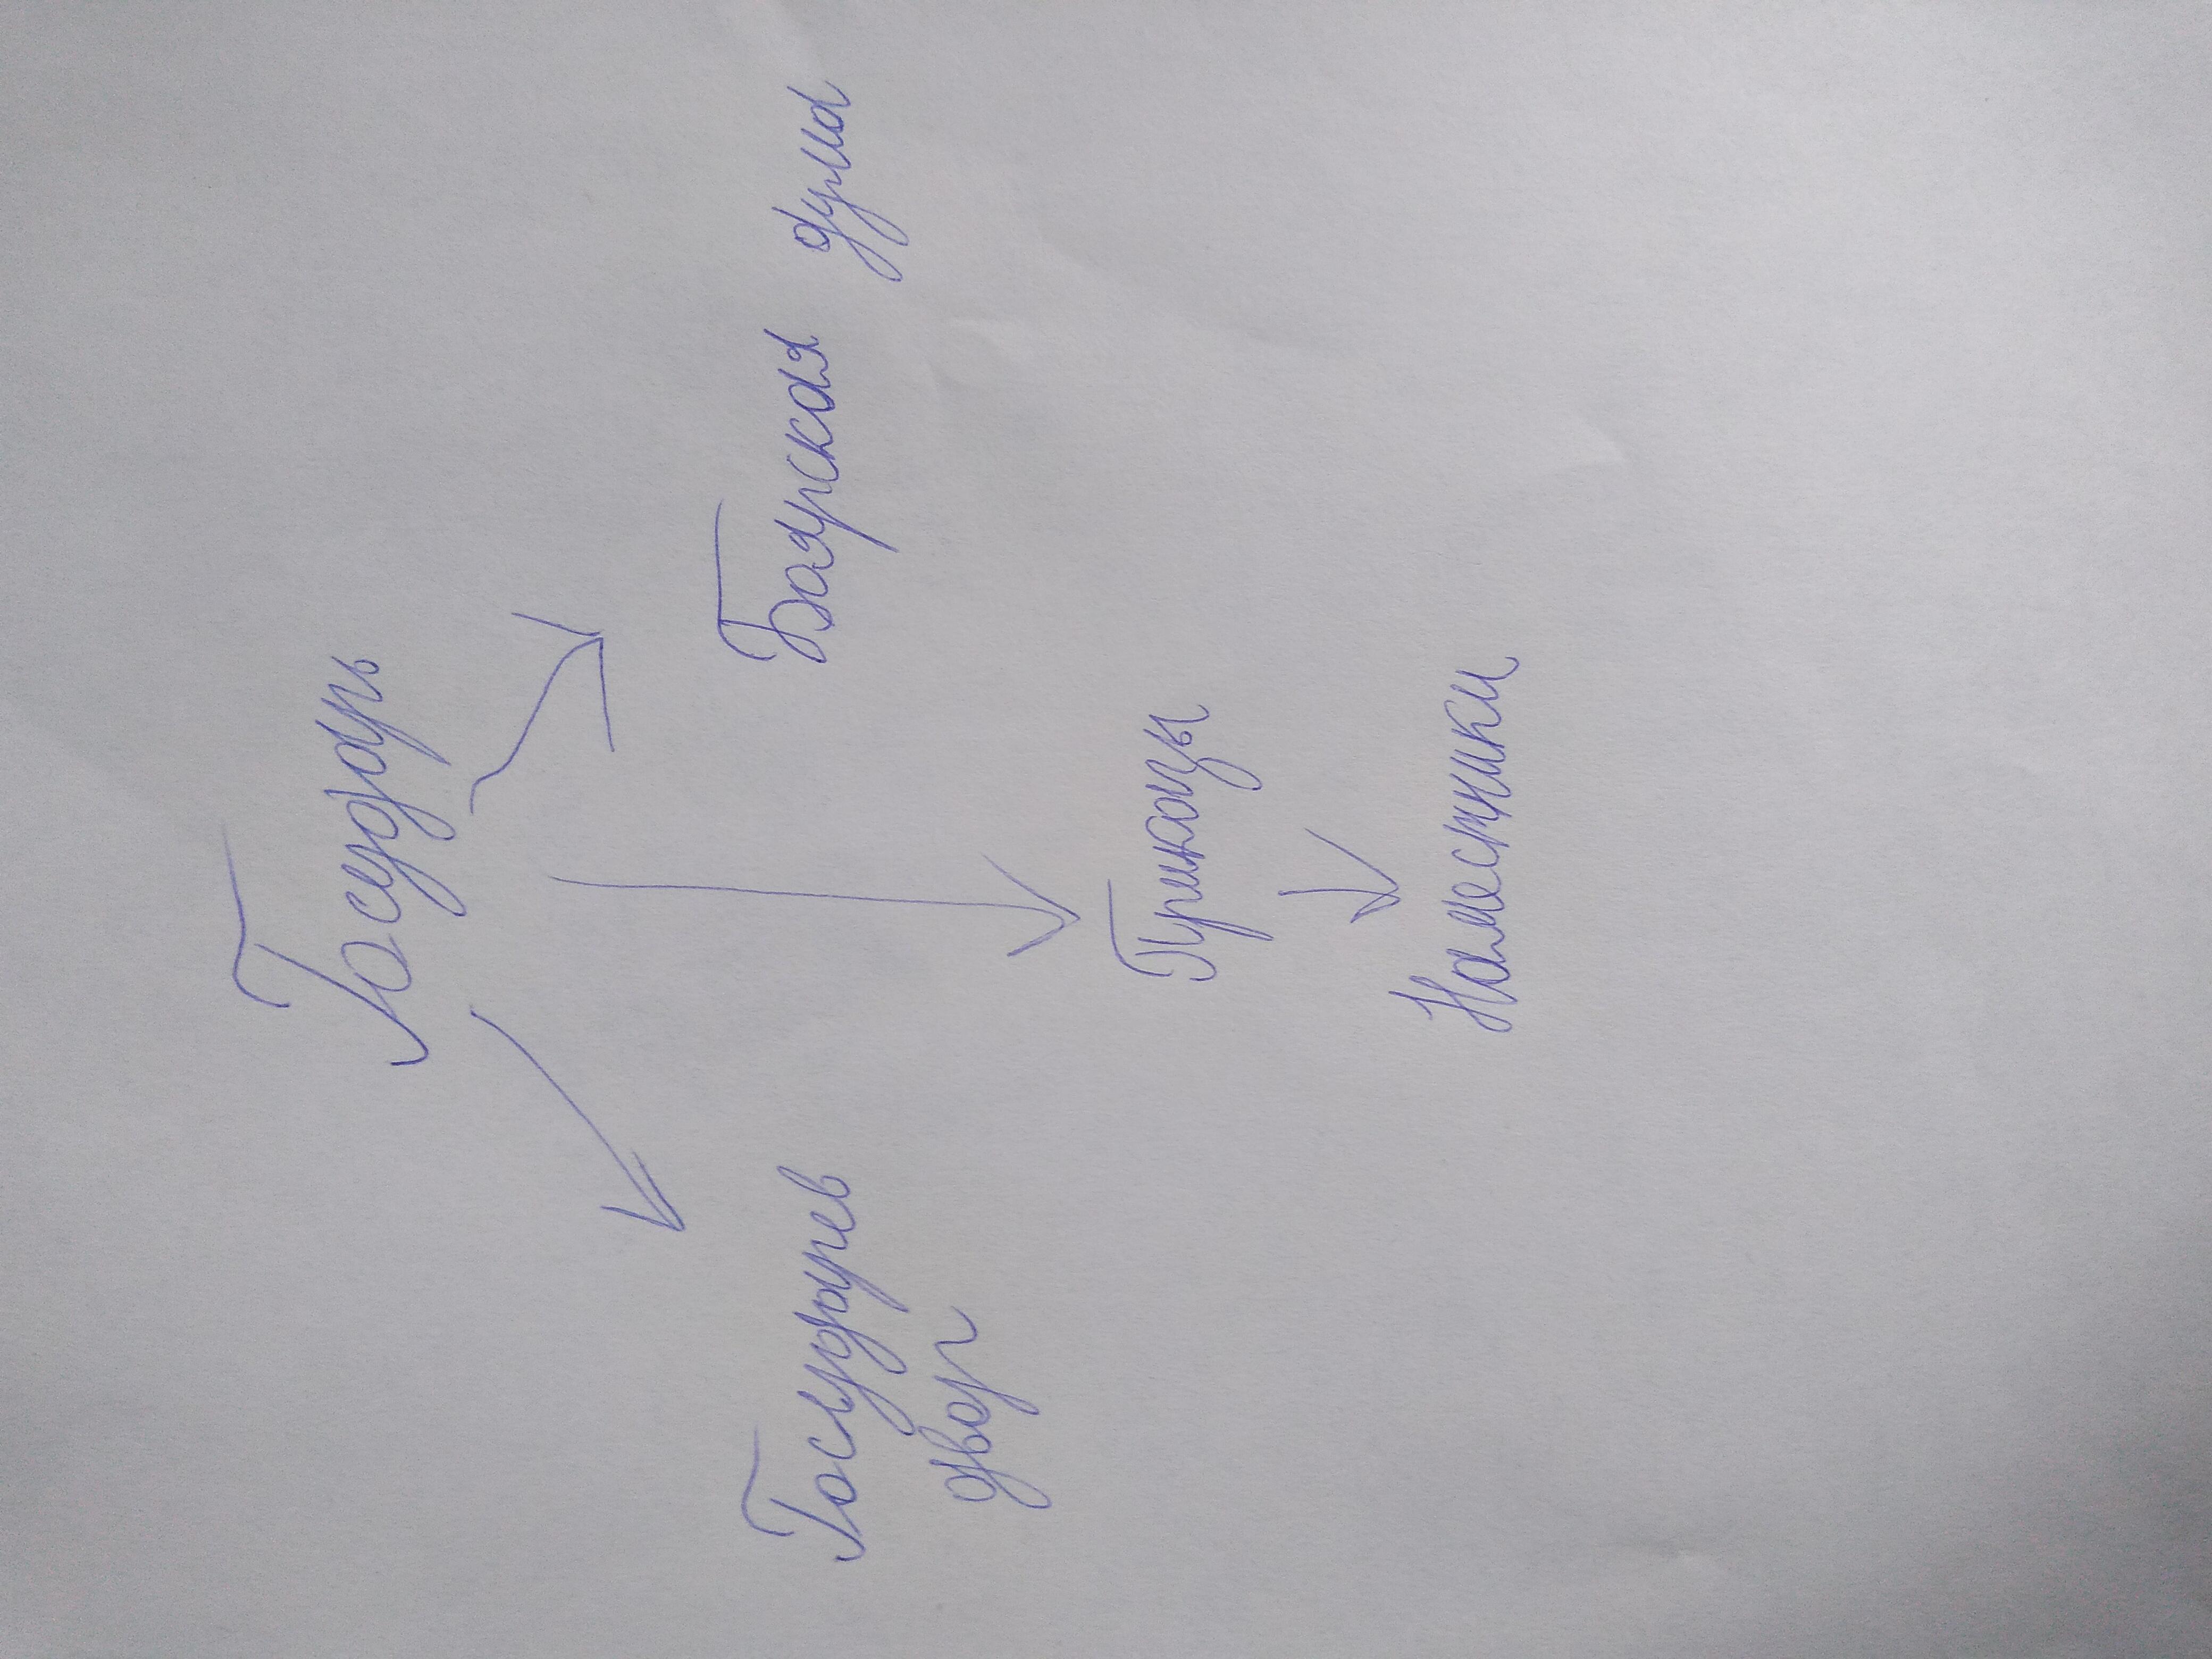 Государь
Государев
двор
Боярская дума
Приказы
Наместники